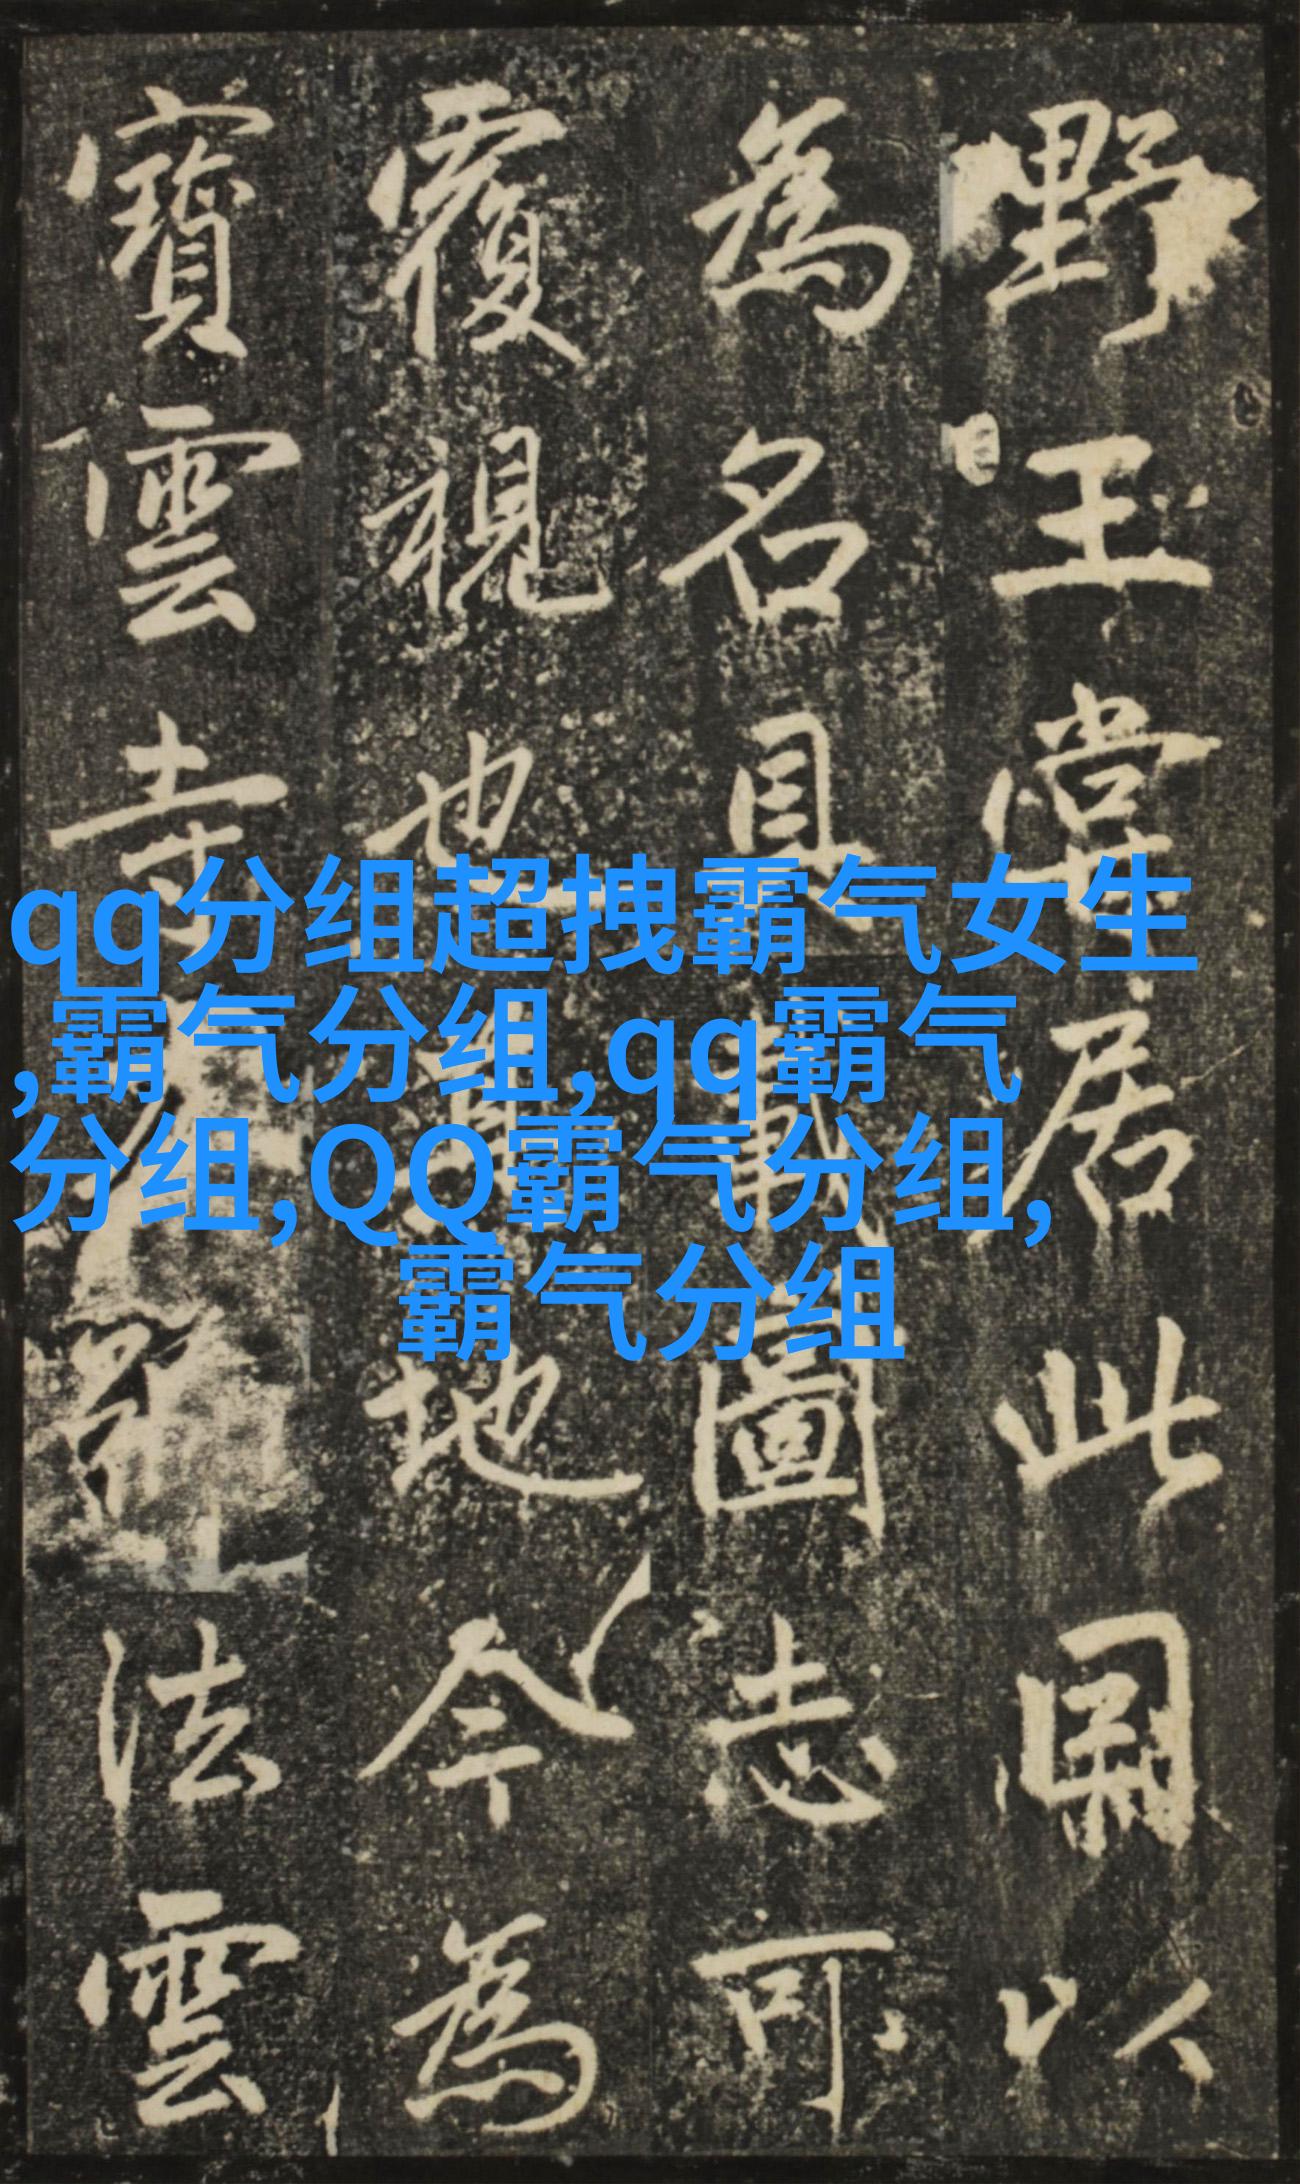 野王居此以
為名具載圖志可
覆視也地今為
寶雲寺法雲
qq分组超拽霸气女生
,霸气分组,qq霸气
分组,QQ霸气分组,
霸气分组